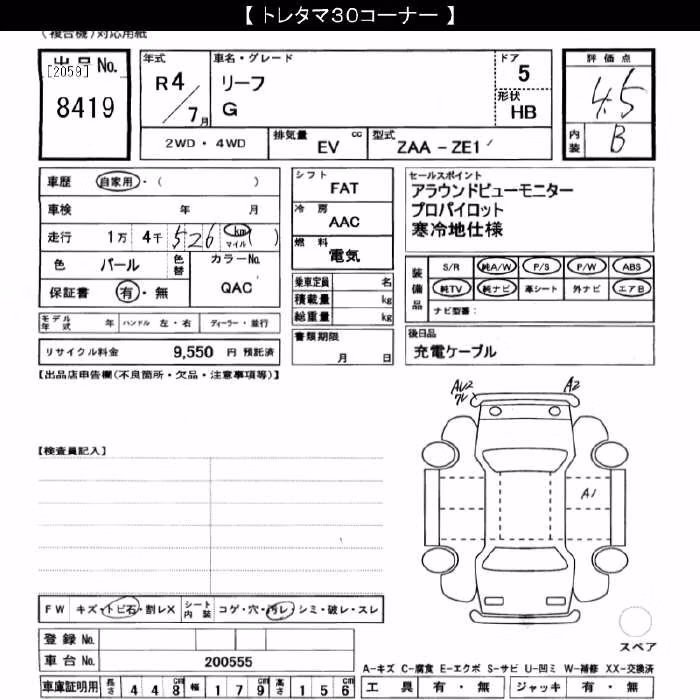 【 トレタマ30コーナー 】
(複合機)対応用紙
出品 No.
[2059]
8419
年式
R4/7月
車名・グレード
リーフ
G
ドア
5
形状
HB
評価点
4.5
内装
B
2WD・4WD
排気量 cc
EV
型式
ZAA－ZE1
車歴 自家用・( )
車検 年 月
走行 1万 4千 526 km マイル ( )
色 パール 色替
カラーNo.
QAC
保証書 有・無
シフト
FAT
冷房
AAC
燃料
電気
乗車定員 名
積載量 kg
総重量 kg
セールスポイント
アラウンドビューモニター
プロパイロット
寒冷地仕様
装備品
S/R 純A/W P/S P/W ABS
純TV 純ナビ 革シート 外ナビ エアB
ナビ型番：
モデル年式 年 ハンドル 左・右 ディーラー・並行
リサイクル料金 9,550 円 預託済
書類期限
月 日
後日品
充電ケーブル
【出品店申告欄(不良箇所・欠品・注意事項等)】
A2
A1
【検査員記入】
FW キズ・トビ石・割レX
シート内装 コゲ・穴・汚レ・シミ・破レ・スレ
登録 No.
車台 No. 200555
車庫証明用 長さ 448cm 幅 179cm 高さ 156cm
スペア
A-キズ C-腐食 E-エクボ S-サビ U-凹ミ W-補修 XX-交換済
工具 有・無 ジャッキ 有・無